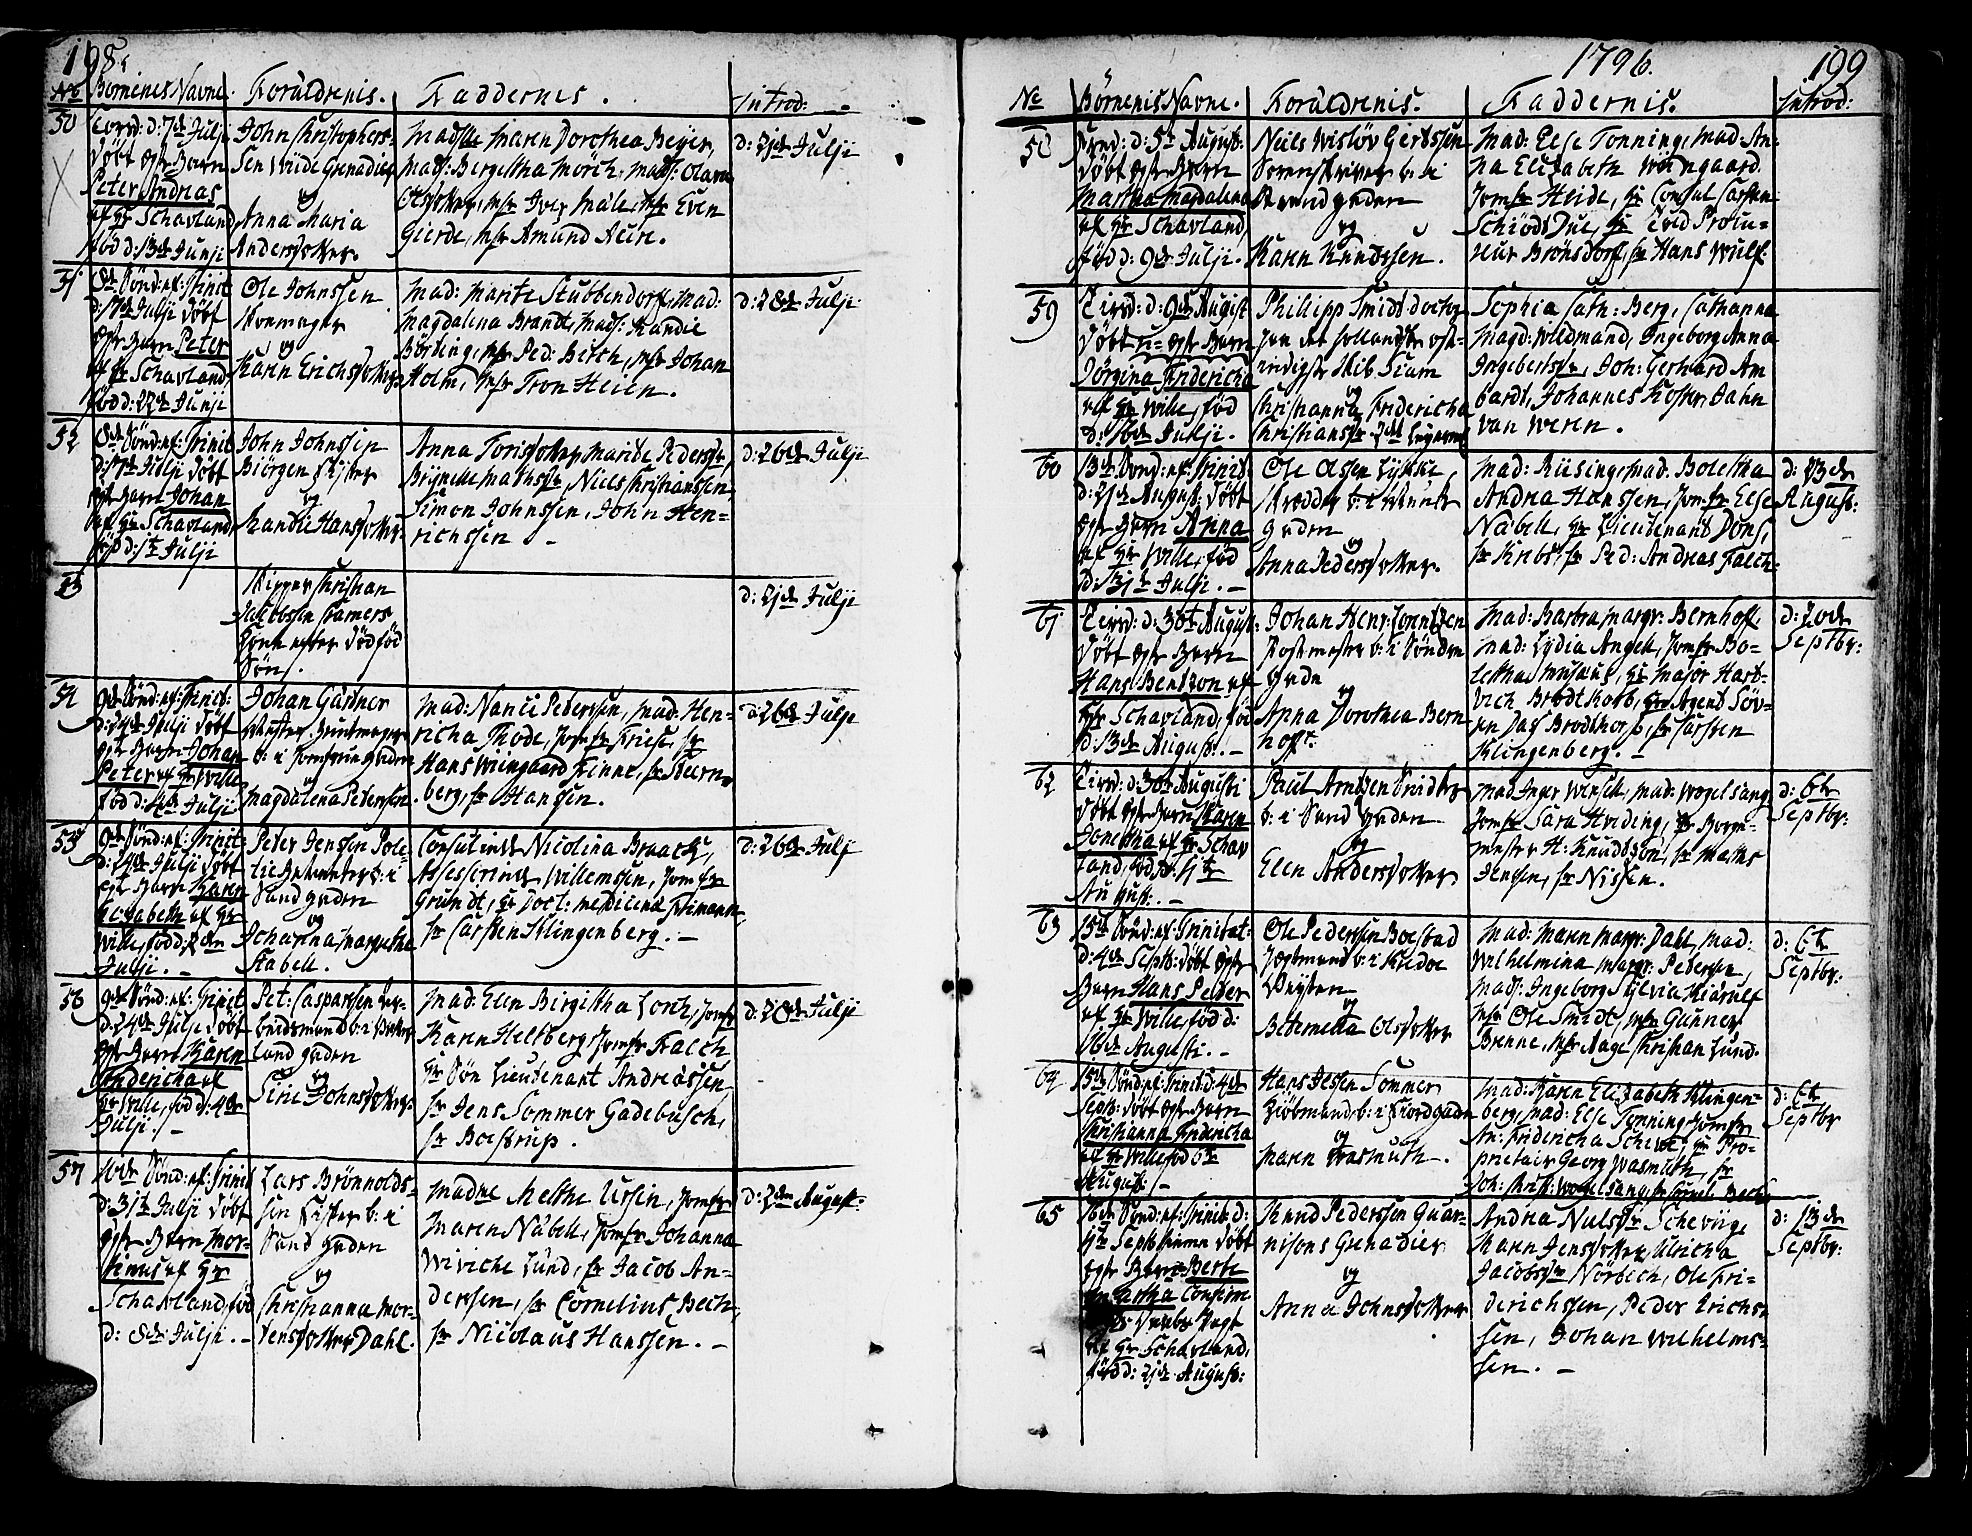 198.
No Børnenes Navne. Forældrenis. Faddernes. Introd:
50
Torsd: d: 7de Julji
døbt
Peter Andreas
af Hr Schavland,
fød d: 13de Junji
John Christophers-
sen Wiide Grenadier
og
Anna Maria
Andersdotter.
Madslle Maren Dorothea Beyer,
Mads: Bergeltha Mørch, Mads: Olava
Iver Mæle, Even
Gierde, Amund Aure.
d: 21de Julji
51
8de Sønd: ef: Trinit
d: 17de Julji døbt
Peter
af Hr Schavland,
fød d: 22de Junji
Ole Johnssen
og
Karen Erichsdotter
Mad: Marite Stubbendorff, Mad:
Magdalena Brandt, Mads: Randie
Børsting, Ped: Buch, Johan
Holm, Tron Heien.
d: 28de Julji
52
8de Sønd: ef: Trinit
d: 17de Julji døbt
Johan
af Hr Schavland,
fød d: 1te Julji
John Johnssen
Biørgen Fisker
og
Randie Hansdotter
Anna Torisdotter, Marite Pedersdr,
Brynelle Mathisdr, Niels Christianssen,
Simon Johnssen, John Hen-
richssen -
d: 26de Julji
53
Skipper Christian
Jacobssen
Kone efter dødfød
Søn.
d: 21de Julji
54
9de Sønd: ef: Trinit:
d: 24de Julji døbt
Johan
Peter af Hr Wille
fød d: Julji
Johan Gärtner
Mester Buntmager
b: i Jomfruegaden
og
Magdalena Pedersen.
Mad: Nanci Pederssen, Mad: Hen-
richa Thode, Jomfr Friese, Hr
Hans Wiingaard Finne, Sr Stern-
berg, Sr Hanssen.
d: 26de Julji
55
9de Sønd: ef: Trinit:
d: 24de Julji døbt
Karen
Elisabeth af Hr
Wille, fød d: 2den
Julji. -
Peter Jenssen Pole-
tie b: i
Sandgaden
og
Johanna Margretha
Stabell.
Consulinde Nicolina Braack,
Assessorinde Willemsen, Jomfr
Grundt, Hr Doct: Medicinæ
Sr Carsten Klingenberg. -
d: 26de Julji
56
9de Sønd: ef: Trinit
d: 24de Julji døbt
Karen
Fridericha af
Hr Wille, fød d: 4de
Julji. -
Pet: Casparssen Ar-
beidsmand b: i
gaden
og
Sirie Johnsdotter.
Mad: Elen Birgitha Lortz, Jomfr
Karen Heltberg, Jomfr Falch,
Hr Søn Lieutenant Andreassen
Sr Jens Sommer Gadebusch,
Sr Boestrup.
d: 20de Julji
57
10de Sønd: ef: Trinit
d: 31te Julji døbt
Mor-
tinus af Hr
Schavland, fød
d: 8de Julji. -
Lars Brønnolds-
sen Fisker b: i
Sandgaden
og
Christianna Mor-
tensdotter Dahl.
Madme Melthe Ursin, Jomfr
Maren Nabell, Jomfr Johanna
Wiviche Lund, Sr Jacob An-
derssen, Sr Cornelius Bech,
Sr Nicolaus Hanssen. -
d: 2den August:
1796. 199
No Børnenis Navne. Forældrenis. Faddernis. Introd:
58
d: 5te August:
døbt
Martha Magdalena
af Hr Schavland,
fød d: 9de Julji.
Niels Wisløv Gertssen
Sorenskriver b: i
Strandgaden
og
Karen Knudssen.
Mad: Else Tonning, Mad: An-
na Elisabeth Wiingaard
Jomfr Heide, Hr Consul Carsten
Schiødt Jue,
Brønsdorf, Sr Hans Wulf.
59
Tirsd: d: 9de August
døbt
Jørgina Fridericha
af Hr Wille, fød
d: 16de Julji.
Philipp Smidt doctor
paa det hollandske ost-
indiske Skib Siam
og
Christianna Fridericha
Christiansdr
Sophia Cath: Berg, Cathanna
Magd: Wildmand, Ingeborg Anna
Ingebertsdr, Joh: Gerhard Am
bardt, Johannes Koster, Jahn
van Weren.
60
13de Sønd: ef: Trinit:
d: 21de August: døbt
Anna
af Hr Wille, fød
d: 31te Julji. -
Ole Olssen Lykke
Skrædder b: i
gaden
og
Anna Pedersdotter.
Mad: Riising, Mad: Boletha
Andrea Hanssen, Jomfr Else
Nabell, Hr Lieutenant Dons,
Sr Krebs, Sr Ped: Andreas Falch.
d: 23de
August:
61
Tirsd: d: 30te August:
døbt
Hans Bentzon af
Hr Schavland, fød
d: 13de August. -
Johan Henr: Lorentzen
Postmester b: i Søndre
gade
og
Anna Dorothea Bern
hoft.
Mad: Barbra Margr: Bernhoft,
Mad: Lydia Angell, Jomfr Bo-
letha Musæus, Hr Major Hart-
vich Brodtkorb, Hr Agent Søv-
ren Daß Brodtkorb, Sr Carsten
Klingenberg. -
d: 20de
Septbr:
62
Tirsd: d: 30te Augusti
døbt Karen
Jonetha af Hr Schav
land, fød d: 11te
August: -
Paul Arntzen Snidker
b: i Sandgaden
og
Elen Andersdotter
Mad Inger Wensell, Mad: Wogelsang
Jomfr Sara Hviding, Hr Borge-
mester H: Knudtzon, Sr Mathis
Jensen, Sr Nissen.
d: 6te
Septbr:
63
15de Sønd: ef: Trinitat:
d: 4de Septb: døbt
Hans Peder
af Hr Wille, fød d:
16de Augusti. -
Ole Pederssen Boestad
b: i
og
Bethmetta Olsdotter
Mad: Maren Margr: Dahl, Mad:
Wilhelmina Margr: Petersen,
Mads: Ingeborg Sylvia Kiærulf
Ole Smidt, Gunner
Brenne, Aage Christian Lund.
d: 6te
Septbr:
64
15de Sønd: ef: Trinit: d: 4de
Septb: døbt
Christianna Fridericha
af Hr Wille fød 6te
August: -
Hans Jessen Sommer
Kiøbmand b: i Fiordgaden
og
Maren Wasmuth.
Mad: Karen Elisabeth Klingen-
berg, Mad: Else Tonning, Jomfr
An: Fridericha Scheldt, Hr Pro-
prietair Georg Wasmuth, Sr
Joh: Christ: Wogelsang, Sr
d: 6te
Septbr
65
16de Sønd: ef: Trinit: d:
11te Septb: hiemme døbt
Berte
Martha
af Hr Schavland,
fød d: 21de August:
Knud Pederssen Guar-
nisons Grenadier
og
Anna Johnsdotter
Andrea Nielsdr Scheviige
Karen Jensdotter, Ulricha
Jacobsdr Nørbech, Ole Fri-
derichssen, Peder Erichs-
sen, Johan Wilhelms-
sen. -
d: 13de
Septbr: